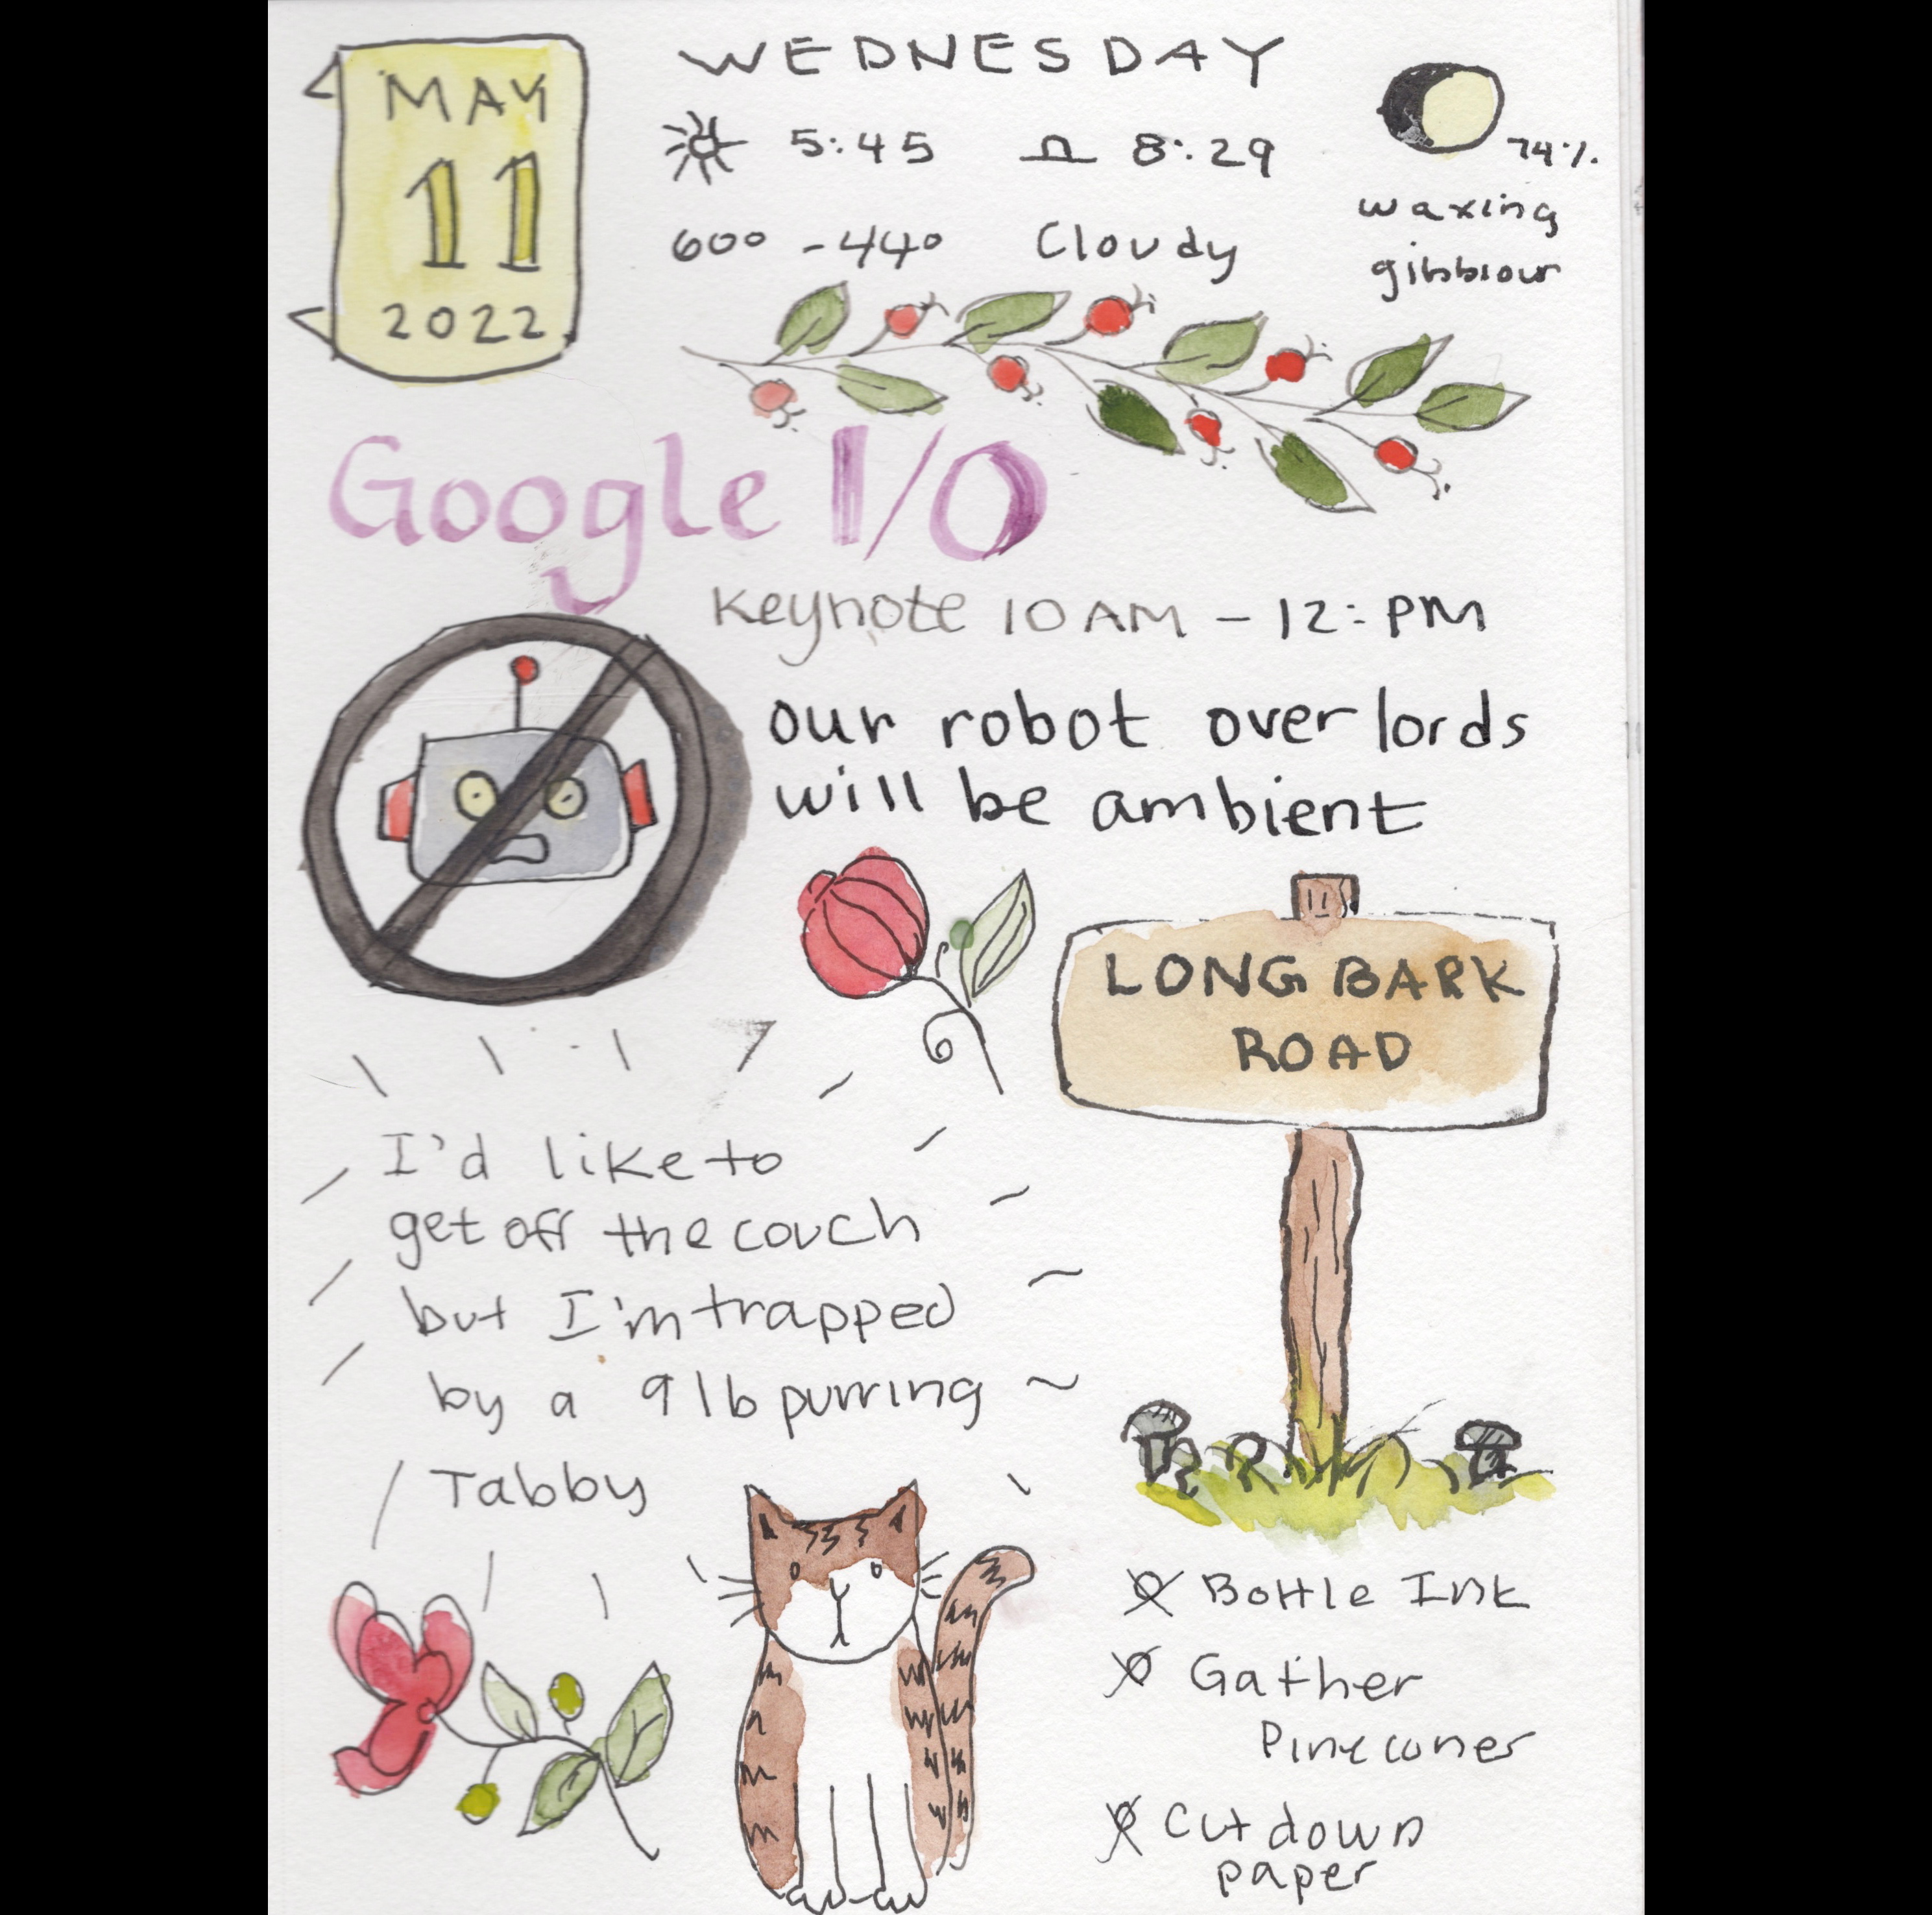 MAY
11
2022
WEDNESDAY
5:45 8:29
60° - 44° Cloudy
74%
waxing
gibbiour
Google I/O
Keynote 10 AM - 12: PM
our robot over lords
will be ambient
LONG BARK
ROAD
I'd like to
get off the couch
but I'm trapped
by a 9 lb purring
Tabby
Bottle Ink
Gather
Pinecones
Cut down
paper